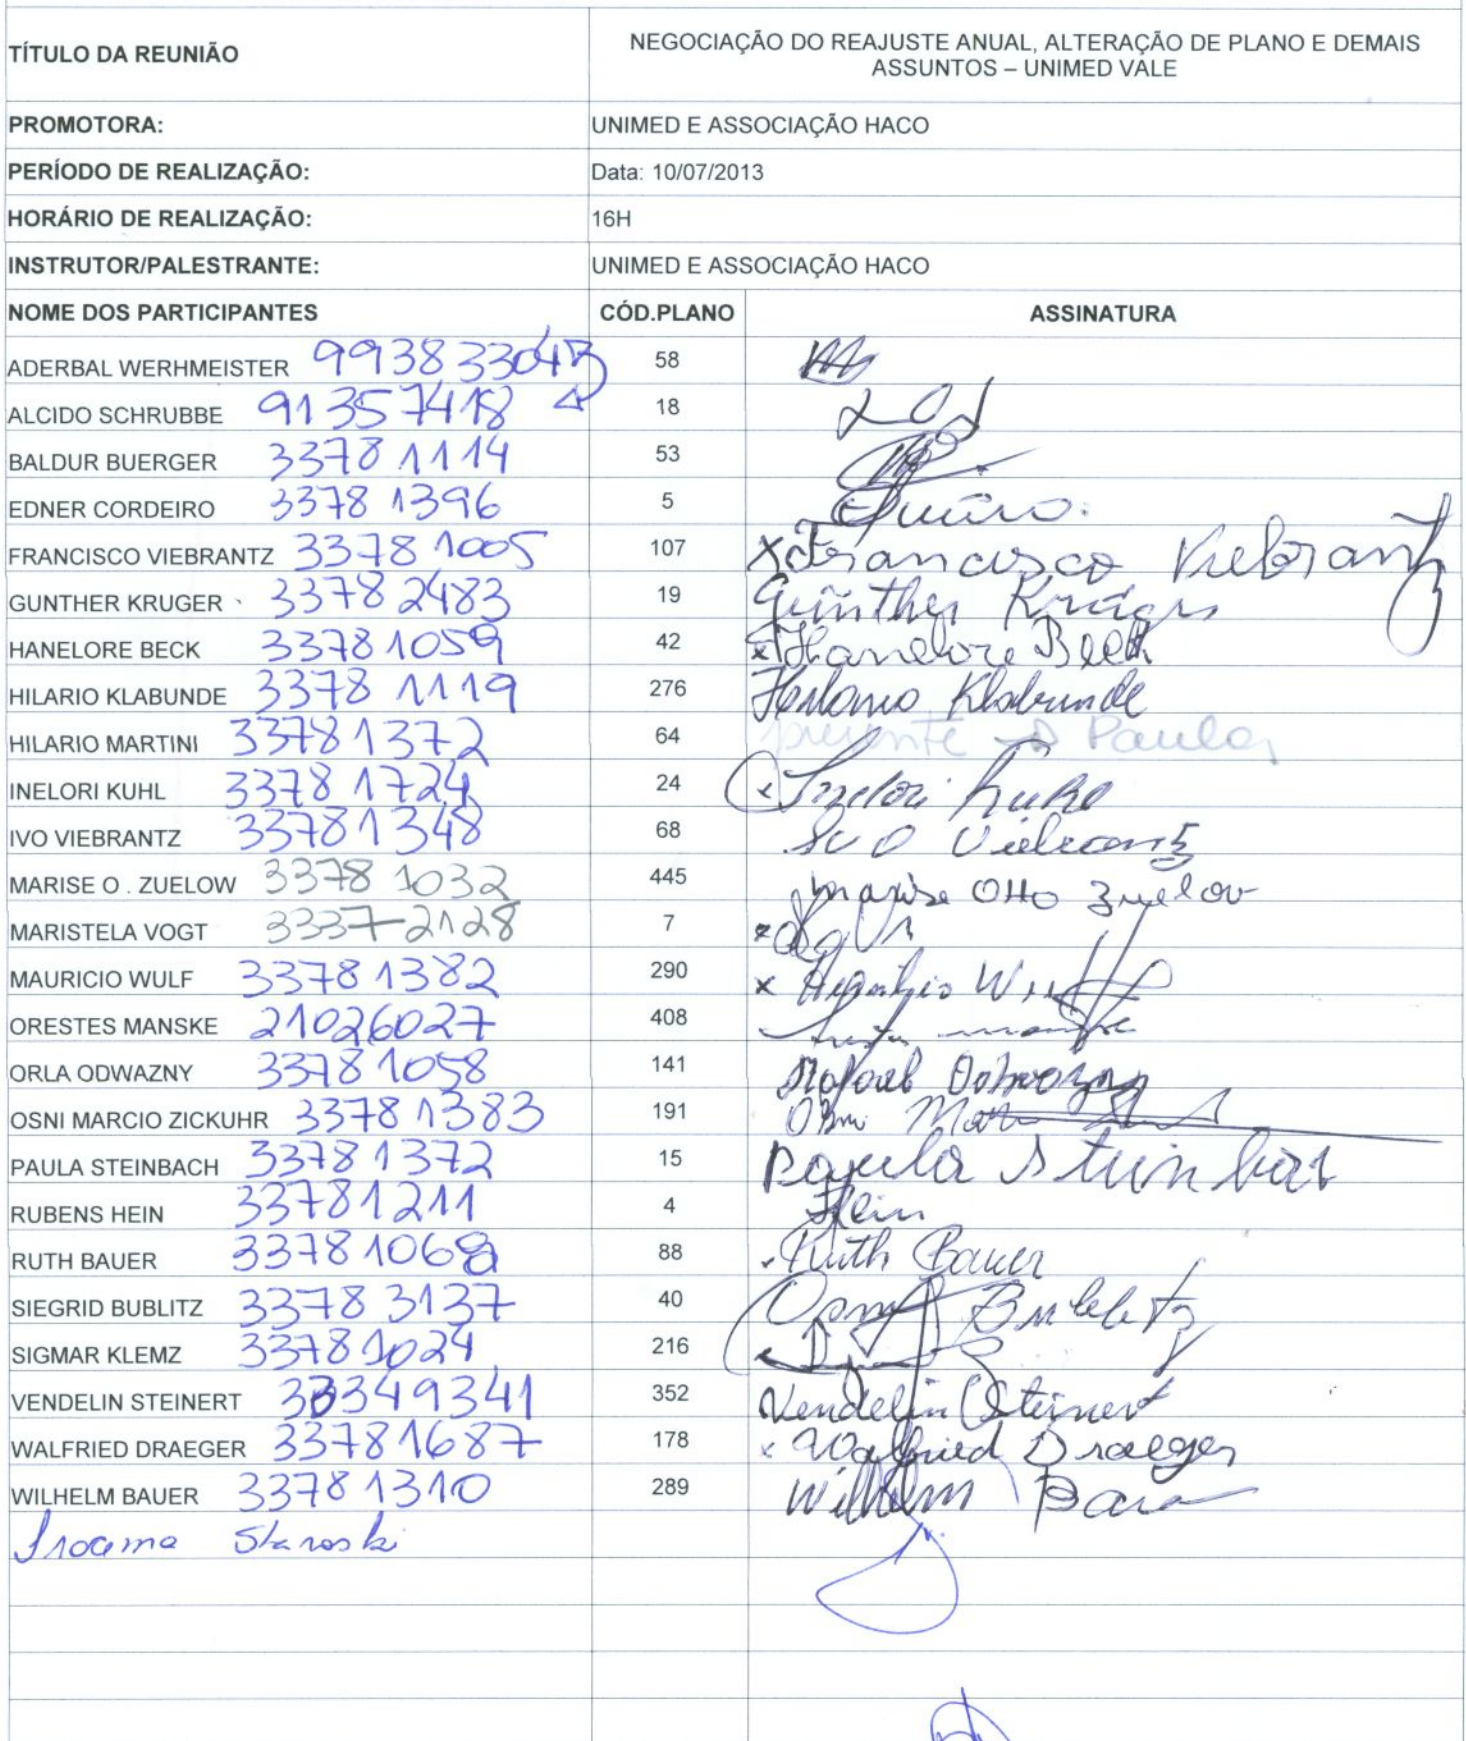 TÍTULO DA REUNIÃO NEGOCIAÇÃO DO REAJUSTE ANUAL, ALTERAÇÃO DE PLANO E DEMAIS
ASSUNTOS – UNIMED VALE
PROMOTORA: UNIMED E ASSOCIAÇÃO HACO
PERÍODO DE REALIZAÇÃO: Data: 10/07/2013
HORÁRIO DE REALIZAÇÃO: 16H
INSTRUTOR/PALESTRANTE: UNIMED E ASSOCIAÇÃO HACO
NOME DOS PARTICIPANTES CÓD.PLANO ASSINATURA
ADERBAL WERHMEISTER 58
ALCIDO SCHRUBBE 91357418 18
BALDUR BUERGER 33781114 53
EDNER CORDEIRO 33781396 5
FRANCISCO VIEBRANTZ 33781005 107 x Francisco Viebrantz
GUNTHER KRUGER 33782483 19 Günther
HANELORE BECK 33781059 42 x Hanelore Beck
HILARIO KLABUNDE 33781119 276 Hilario Klabunde
HILARIO MARTINI 33781372 64 Paula
INELORI KUHL 33781724 24 x Inelori Kuhl
IVO VIEBRANTZ 33781348 68 Ivo Viebrantz
MARISE O . ZUELOW 33781032 445 Marise Otto Zuelow
MARISTELA VOGT 33372128 7
MAURICIO WULF 33781382 290 x
ORESTES MANSKE 21026027 408
ORLA ODWAZNY 33781058 141
OSNI MARCIO ZICKUHR 33781383 191 Osni
PAULA STEINBACH 33781372 15 Paula
RUBENS HEIN 33781211 4 Hein
RUTH BAUER 88 Ruth Bauer
SIEGRID BUBLITZ 33783137 40 Bublitz
SIGMAR KLEMZ 33781024 216
VENDELIN STEINERT 33349341 352 Vendelin Steinert
WALFRIED DRAEGER 33781687 178 x Walfried Draeger
WILHELM BAUER 33781310 289 Wilhelm
Staroski